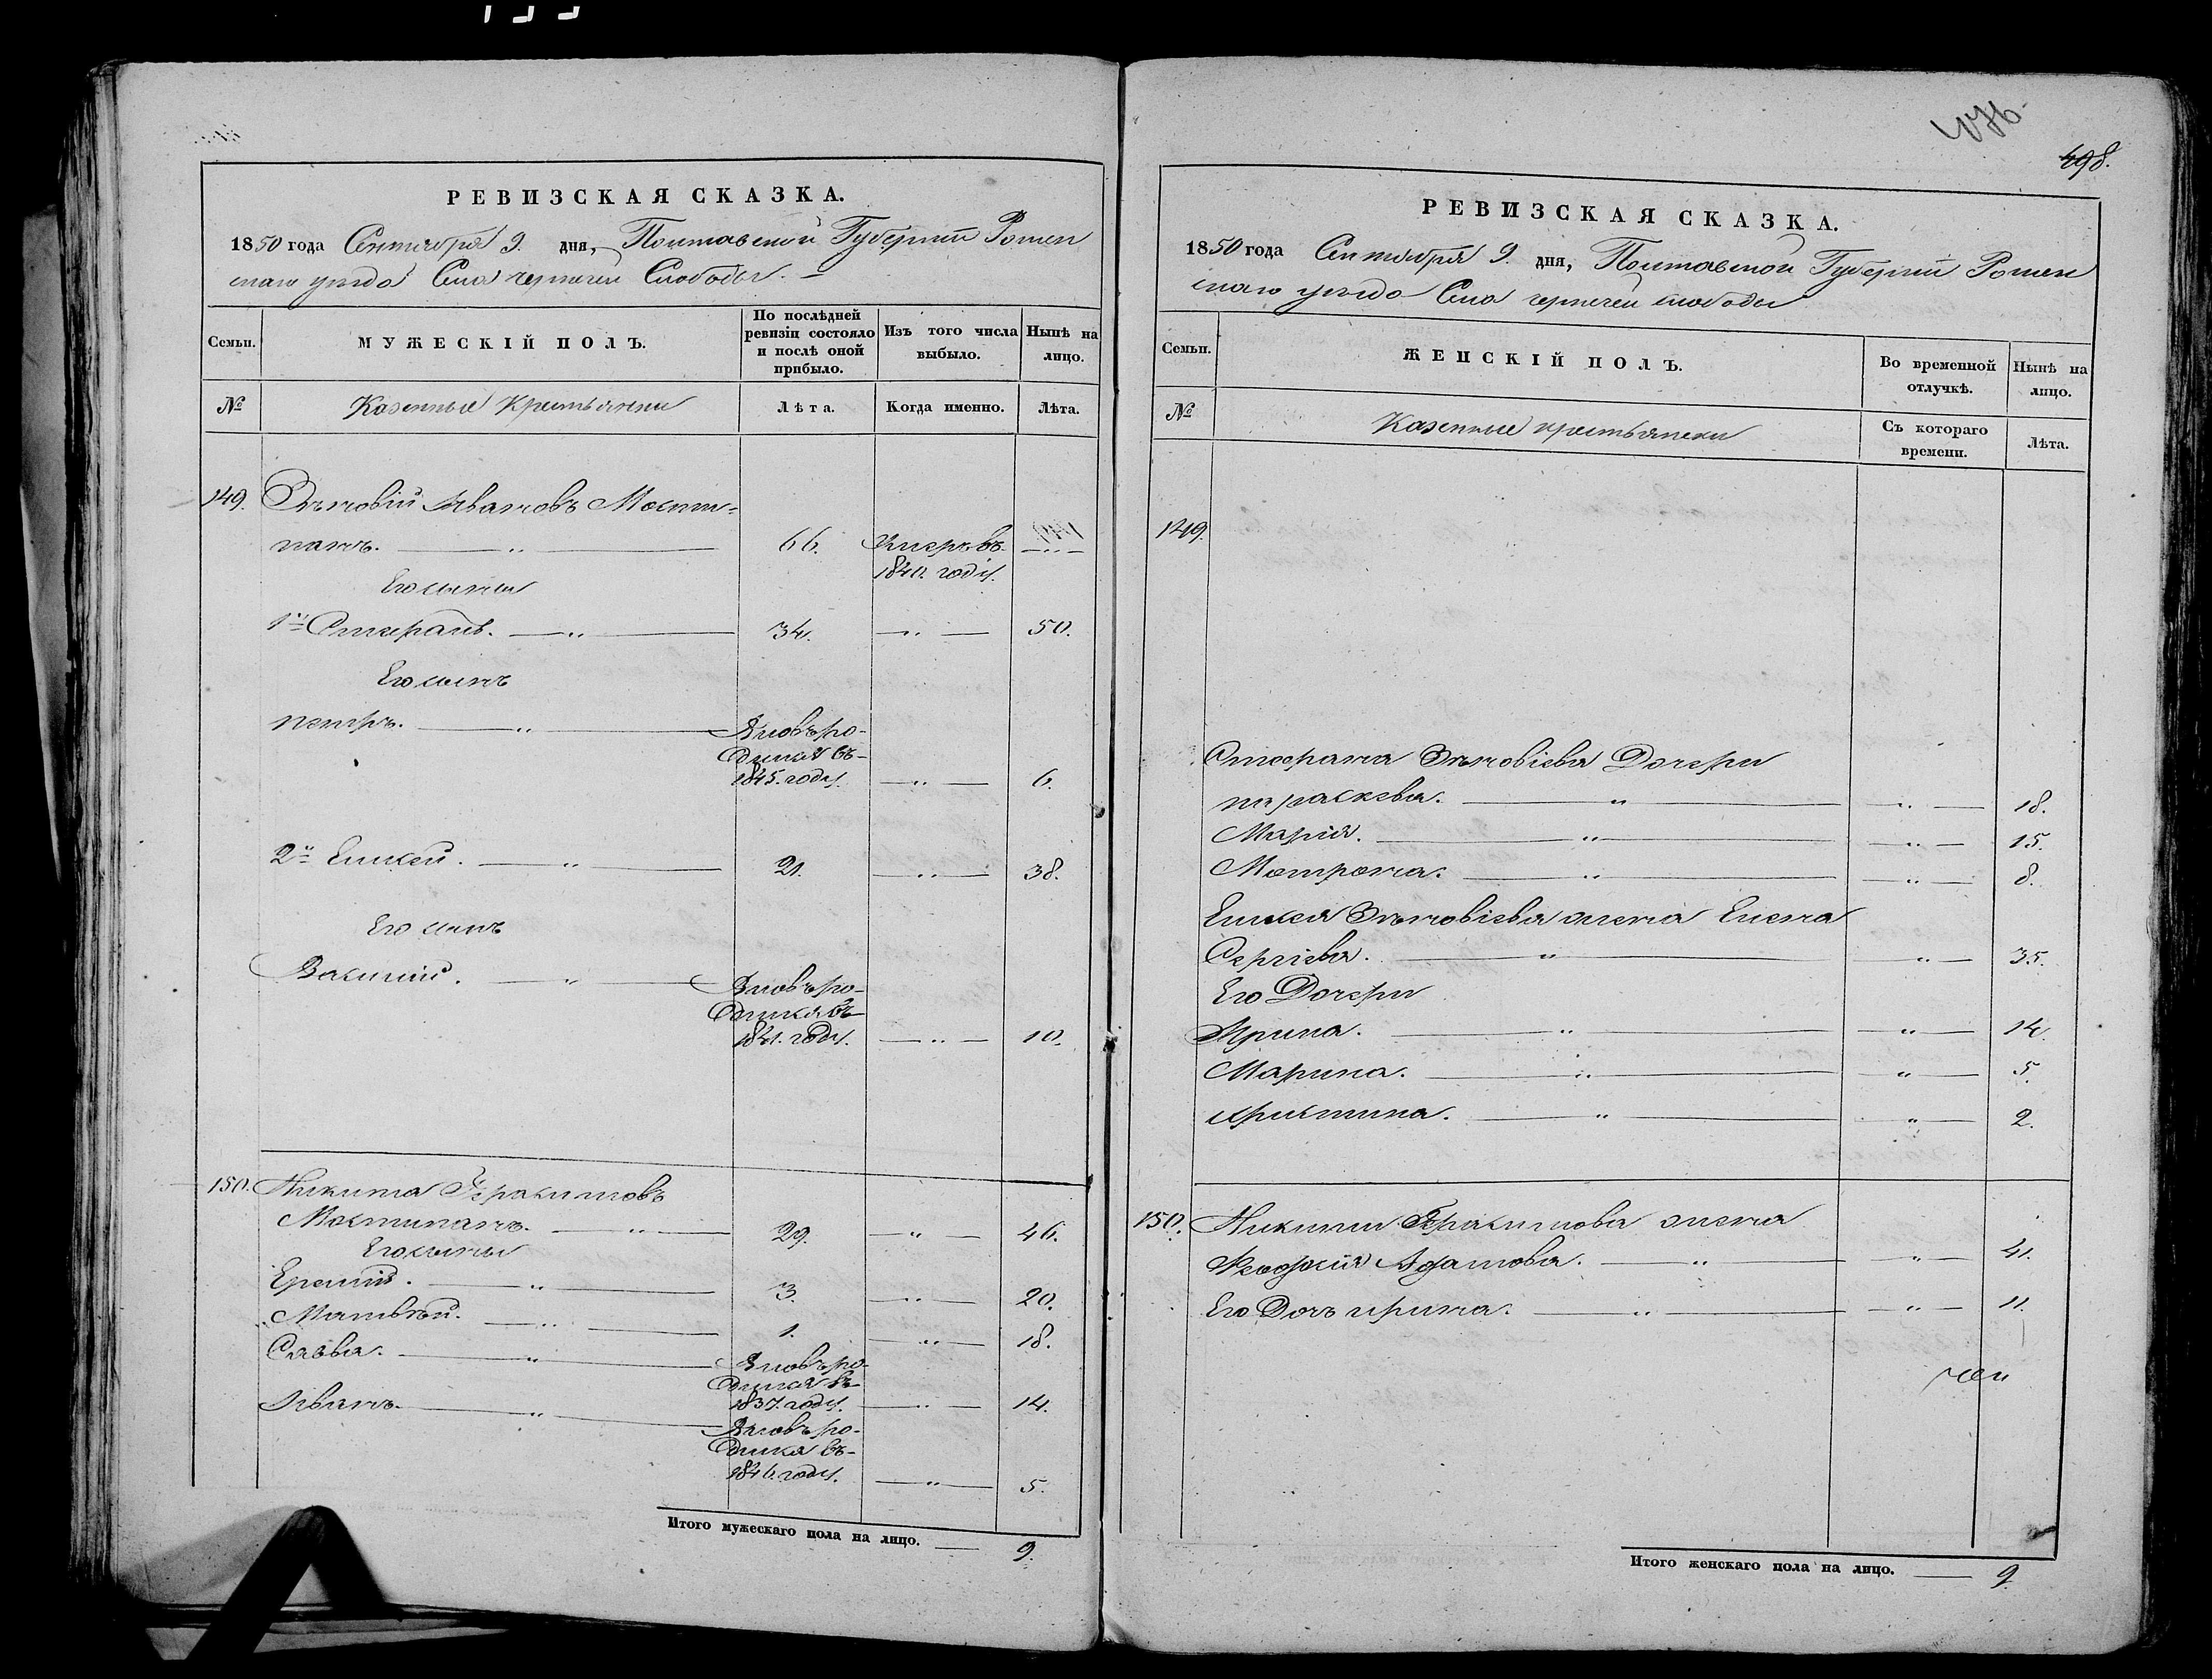 498.
РЕВИЗСКАЯ СКАЗКА.
1850 года Сентября 9. дня, Полтавской Губерніи Ромен
скаго уѣзда Села чернечей Слободы.
Семьи.
МУЖЕСКІЙ ПОЛЪ.
По послѣдней
ревизіи состояло
и послѣ оной
прибыло.
Изъ того числа
выбыло.
Нынѣ на
лицо.
№
Казенные Крестьянни
Лѣта.
Когда именно.
Лѣта.
149. Зѣновій Ивановъ Мости=
панъ. 66. Умеръ въ
1840. году.
Его сыны
1й Стефанъ. 34. 50.
Его сынъ
петръ. Вновь ро-
дился въ
1845. году. 6.
2й Елисей. 21. 38.
Его сынъ
Василій. Вновь ро-
дился въ
1841. году. 10.
150. Никита Герасимовъ
Мостипанъ. 29. 46.
Его сыны
Еремій. 3. 20.
Матвѣй. 1. 18.
Савва. Вновь ро-
дился въ
1837. году. 14.
Иванъ. Вновь ро-
дился въ
1846. году. 5.
Итого мужескаго пола на лицо. 9.
РЕВИЗСКАЯ СКАЗКА.
1850 года Сентября 9. дня, Полтавской Губерніи Ромен
скаго уѣзда Села чернечей слободы
Семьи.
ЖЕНСКІЙ ПОЛЪ.
Во временной
отлучкѣ.
Нынѣ на
лицо.
№
Казенные крестьянски
Съ котораго
времени.
Лѣта.
149.
Стефана Зѣновіева Дочери
параскева. 18.
Марія. 15.
Мотрона. 8.
Елисея Зѣновіева жена Елена
Сергіева. 35.
Его Дочери
Ирина. 14.
Марина. 5.
христина. 2.
150. Никиты Герасимова жена
Феодосія Адамова. 41.
Его Дочь ирина. 11.
Итого женскаго пола на лицо. 9.